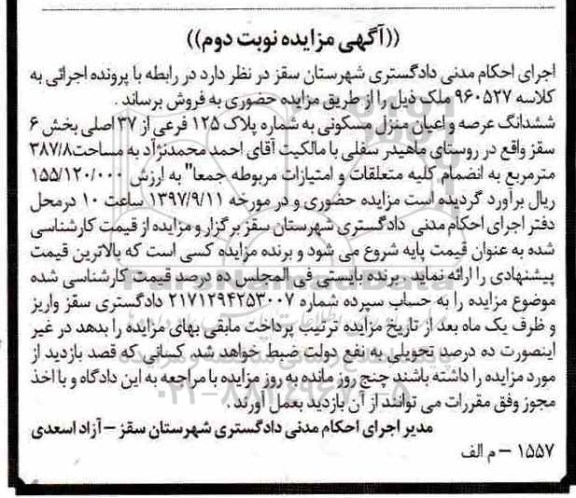 ((آگهی مزایده نوبت دوم))
اجرای احکام مدنی دادگستری شهرستان سقز در نظر دارد در رابطه با پرونده اجرائی به
کلاسه ۹۶۰۵۲۷ ملک ذیل را از طریق مزایده حضوری به فروش برساند .
ششدانگ عرصه و اعیان منزل مسکونی به شماره پلاک ۱۲۵ فرعی از ۳۷ اصلی بخش ۶
سقز واقع در روستای ماهیدر سفلی با مالکیت آقای احمد محمدنژآد به مساحت ۳۸۷/۸
مترمربع به انضمام کلیه متعلقات و امتیازات مربوطه جمعا" به ارزش ۱۵۵/۱۲۰/۰۰۰
ریال برآورد گردیده است مزایده حضوری و در مورخه ۱۳۹۷/۹/۱۱ ساعت ۱۰ درمحل
دفتر اجرای احکام مدنی دادگستری شهرستان سقز برگزار و مزایده از قیمت کارشناسی
شده به عنوان قیمت پایه شروع می شود و برنده مزایده کسی است که بالاترین قیمت
پیشنهادی را ارائه نماید . برنده بایستی فی المجلس ده درصد قیمت کارشناسی شده
موضوع مزایده را به حساب سپرده شماره ۲۱۷۱۲۹۴۲۵۳۰۰۷ دادگستری سقز واریز
و ظرف یک ماه بعد از تاریخ مزایده ترتیب پرداخت مابقی بهای مزایده را بدهد در غیر
اینصورت ده درصد تحویلی به نفع دولت ضبط خواهد شد. کسانی که قصد بازدید از
مورد مزایده را داشته باشند چنج روز مانده به روز مزایده با مراجعه به این دادگاه و با اخذ
مجوز وفق مقررات می توانند از آن بازدید بعمل آورند .
مدیر اجرای احکام مدنی دادگستری شهرستان سقز – آزاد اسعدی
۱۵۵۷ – م الف
ParsNamadData